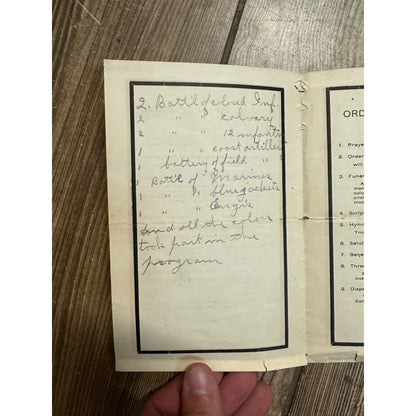 2. Batt'l of colord Inf.
2 " " calvary
2 " " 12 infantry
1 " " coast artillery
1 battery of field "
1 Batt'l of Marines
1 " " bluejackets
1 " " Engi's
and all the colors
took part in the
program
ORD
1. Praye
2. Order
3. Funer
4. Script
5. Hymn
6. Salut
7. Benje
8. Three
9. Dispe